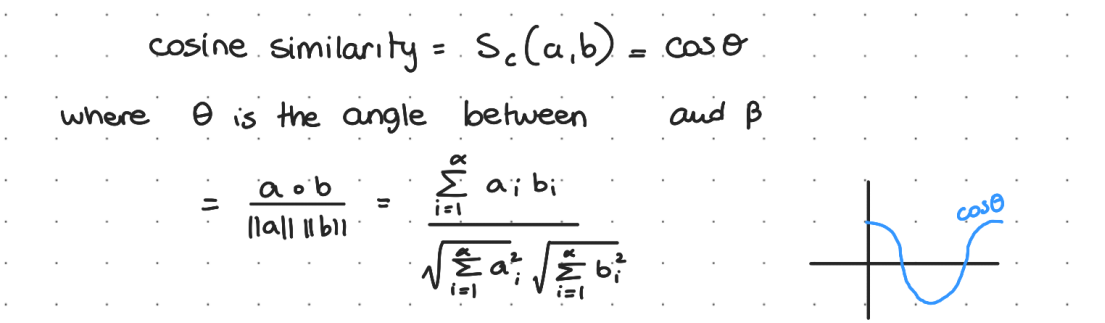 cosine similarity = S_c(a,b) = cosθ
where θ is the angle between and β
= a∘b / ||a|| ||b|| = Σ_{i=1}^{α} a_i b_i / √(Σ_{i=1}^{α} a_i^2) √(Σ_{i=1}^{α} b_i^2)
cosθ